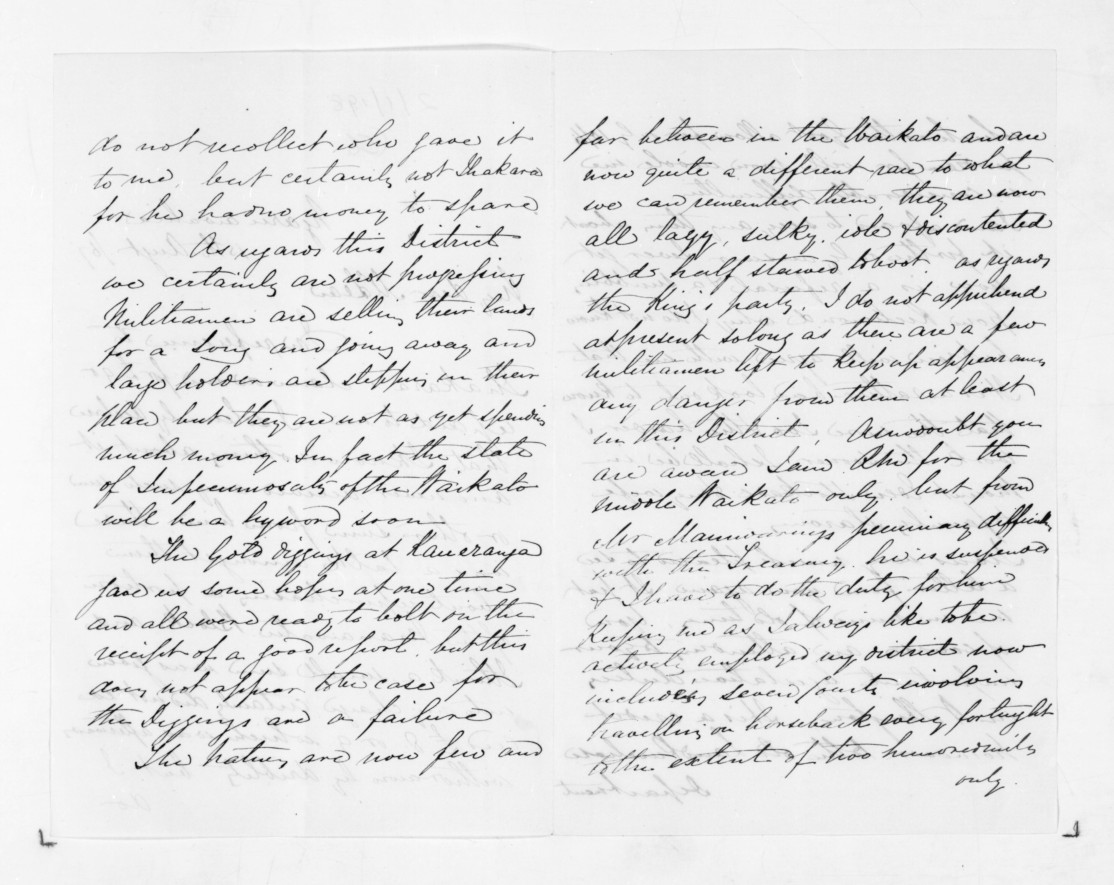 do not recollect who gave it
to me, but certainly not Ihakara
for he had no money to spare
As regards this District
we certainly are not progressing
Militiamen are selling their lands
for a Song and going away and
large holders are stepping in their
place but they are not as yet spending
much money. In fact the state
of Impecunosity of the Waikato
will be a byword soon
The Gold diggings at Kaueranga
gave us some hopes at one time
and all were ready to bolt on the
receipt of a good report. but this
does not appear to be case for
the Diggings are a failure
The natives are now few and
far between in the Waikato and are
now quite a different race to what
we can remember them, they are now
all lazy, sulky, idle & discontented
and half starved to boot. as regards
the King's party, I do not apprehend
at present so long as there are a few
militiamen left to keep up appearances
any danger from them at least
in this District, As no doubt you
are aware I am RM for the
middle Waikato only. but from
Mr Mainwaring's pecuniary difficulty
with the Treasury. he is suspended
& I have to do the duty for him
Keeping me as I always like to be.
actively employed my district now
including seven Courts involving
travelling on horseback every fortnight
to the extent of two hundred miles
only.